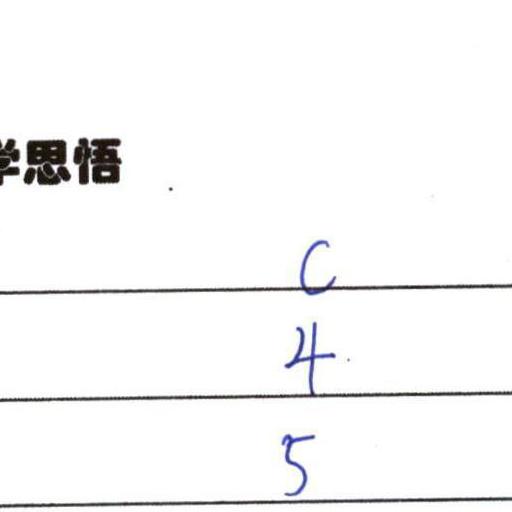 学思悟
C
4
5